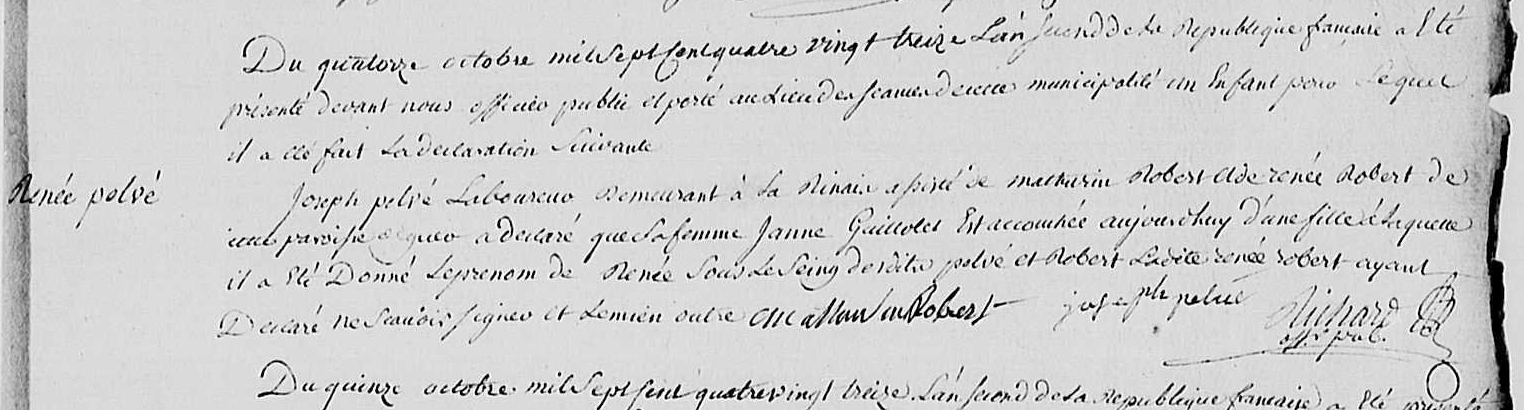 Du quatorze octobre mil Sept Cent quatre vingt treize L'an second de La Republique francaise a Eté
présenté devant nous officier public et porté au Lieu des seances de cette municipalité un Enfant pour Lequel
il a eté fait La declaration Suivante
Renée pelvé
Joseph pelvé Laboureur Demeurant à La Rinais assisté de mathurin Robert et de renée Robert de
cette paroisse a declaré que Sa femme Janne Guillolet Est accouchée aujourdhuy d'une fille à Laquelle
il a Eté Donné Le prenom de Renée Sous Le Seing desdits pelvé et Robert Ladite renée robert ayant
Declaré ne Scavoir signer et Le mien outre Mathurin Robert joseph pelvé Richard
offr. pub.
Du quinze octobre mil Sept Cent quatre vingt treize L'an second de La Republique francaise a Eté présenté